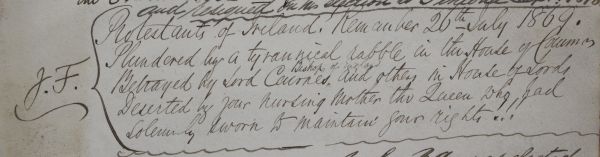 and resigned on his election to
Protestants of Ireland. Remember 26th July 1869.
Plundered by a tyrannical rabble in the House of Commons
Betrayed by Lord Cairnes, Bishop of and others in House of Lords
Deserted by your nursing Mother the Queen who had
solemnly sworn to maintain your rights!!!
J. F.